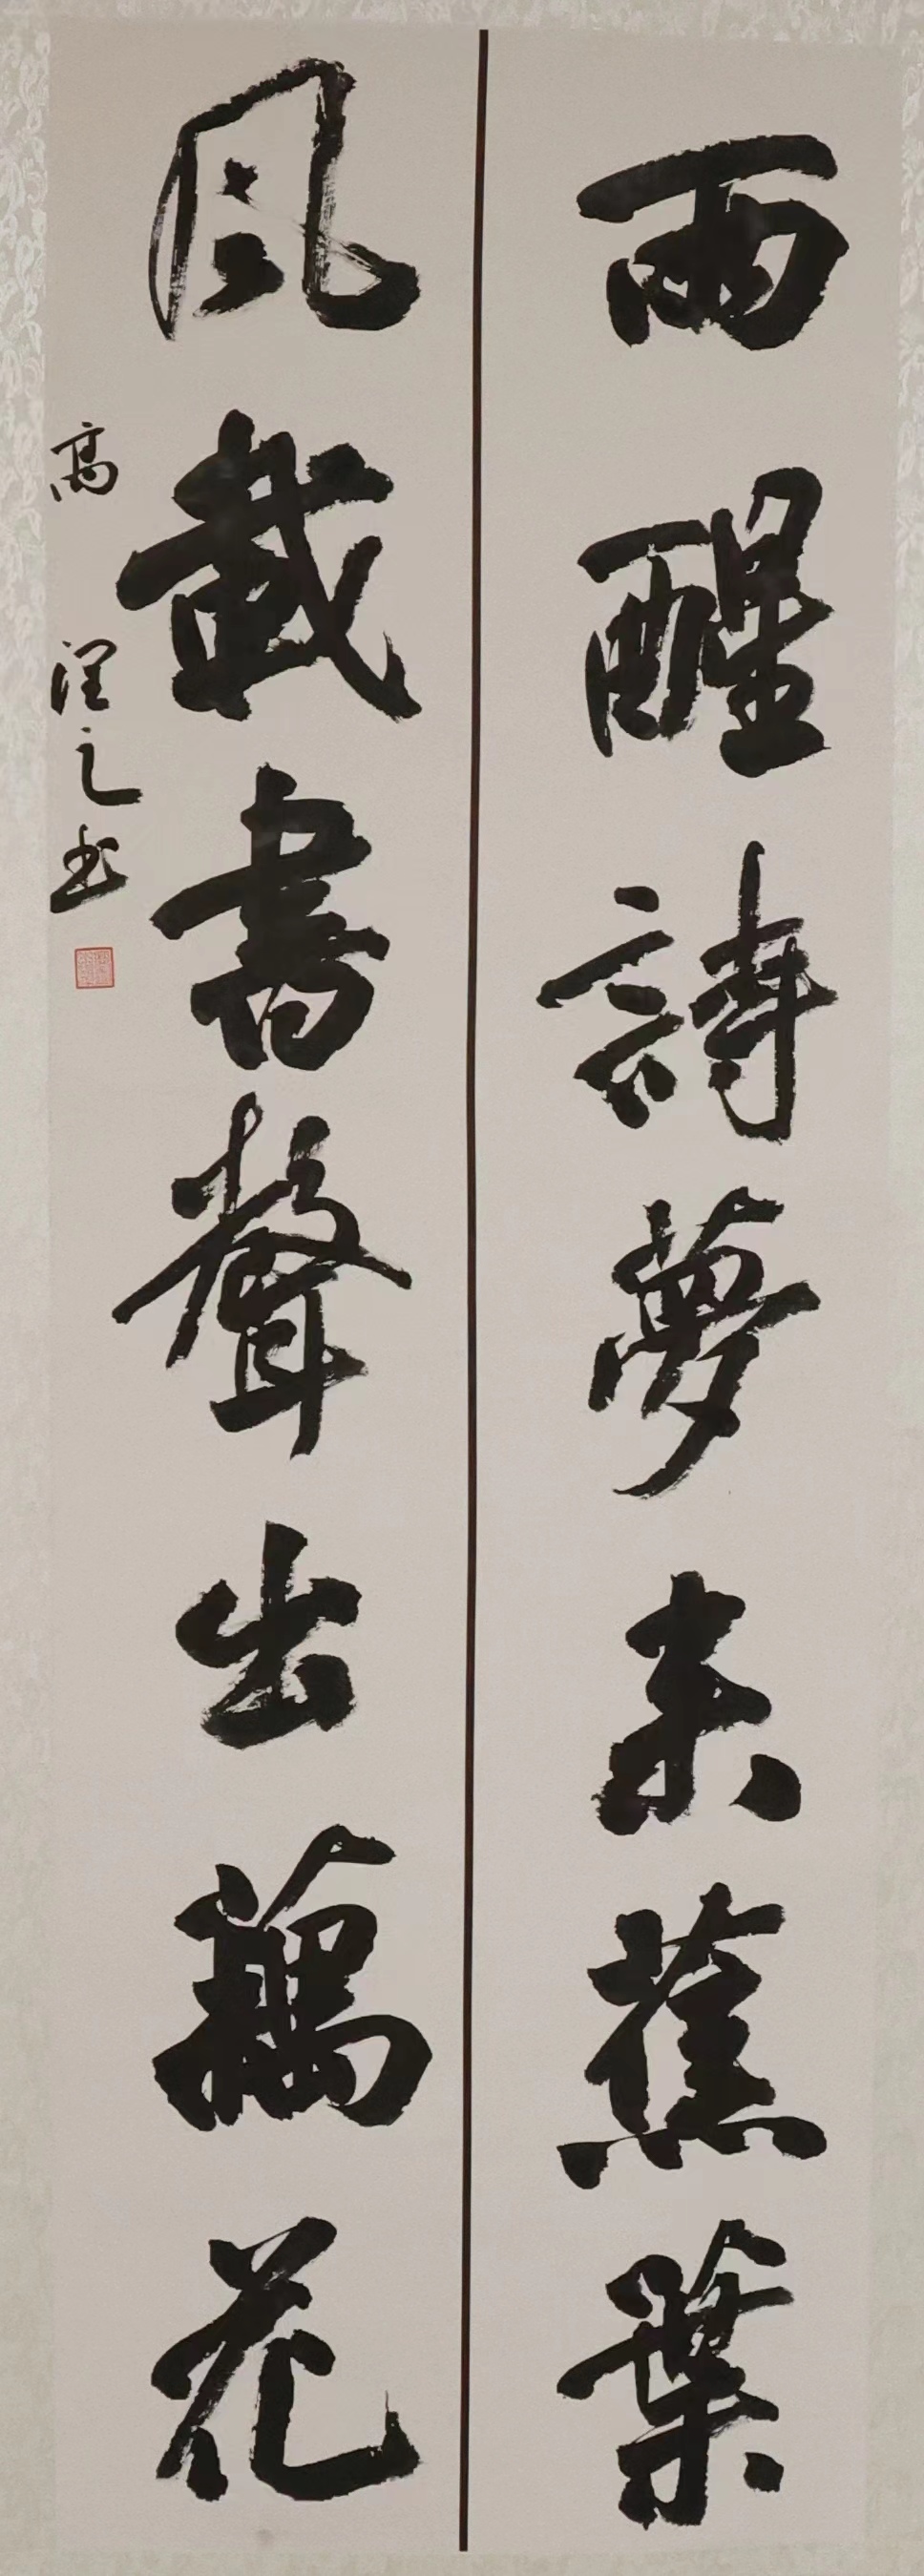 雨醒詩夢来蕉葉
風載書聲出藕花
高 之书